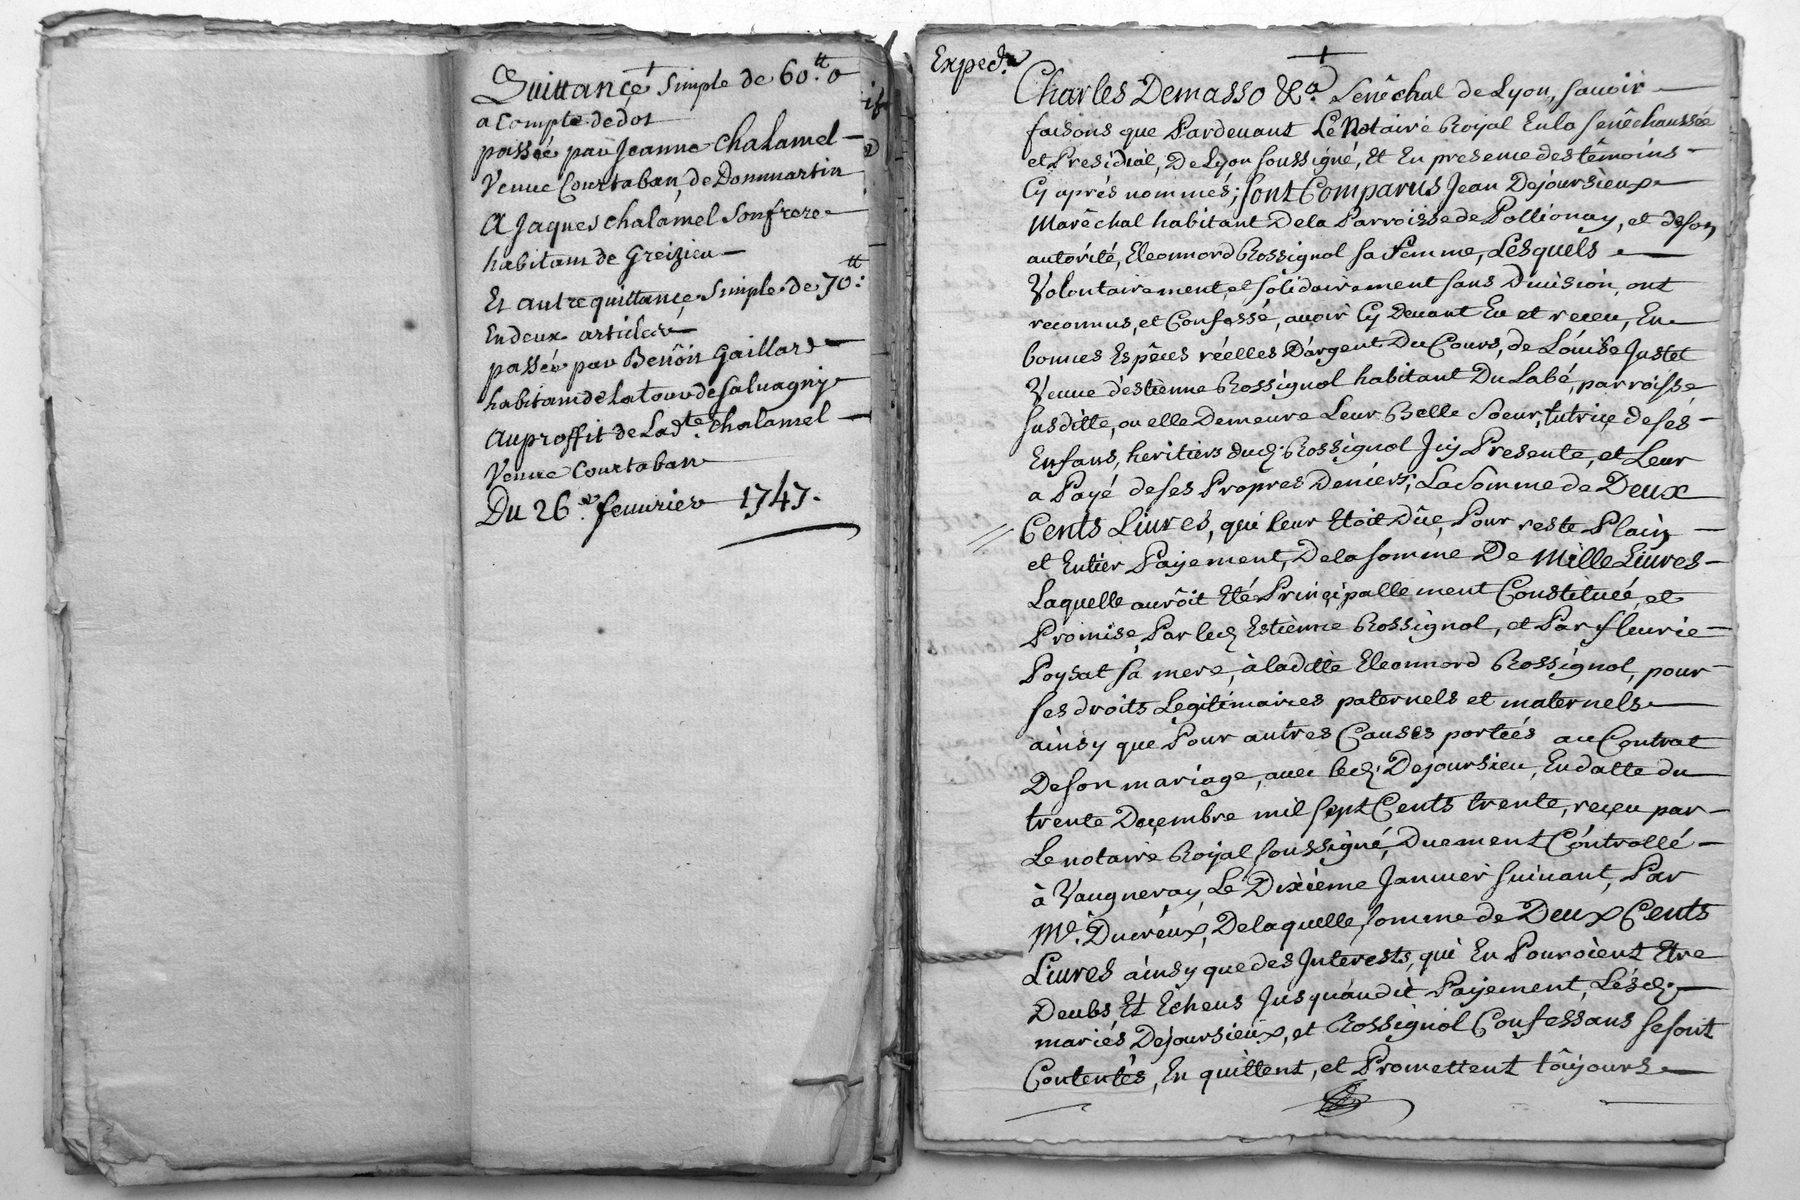 Quittance simple de 60.tt 0
a Compte de dot
passée par Jeanne Chalamel
Veuve Courtaban, de Dommartin
A Jaques Chalamel Son frere
habitans de Greizieu
Et autre quittance Simple de 70.tt
En deux articles
passée par Benôit Gaillard
habitam de la tour de Saluagny
Au proffit de Lad.te Chalamel
Veuve Courtaban
Du 26.e feuurier 1747.
Exped.
Charles Demasso &a. Senêchal de Lyon, sauoir
faisons que Pardeuant Le Notaire Royal En la Senêchaussée
et Presidial, De Lyon soussigné, Et En presence des têmoins
Cy aprés nommés; sont Comparus Jean Dejoursieux
Marêchal habitant De la Parroisse de Pollionay, et de son
autórité, Eleonnord Rossignol sa femme, Lesquels
Volontairement, et solidairement sans Diuision, ont
reconnus, et Confessé, auoir Cy Deuant Eu et receu, En
bonnes Espêces réelles D'argent Du Cours, de Lóuise Justet
Veuue d'estienne Rossignol habitant Du Labé, parroisse
susditte, ou elle Demeure Leur Belle Soeur, tutrice de ses
Enfans, heritiers dud. Rossignol Icy Presente, et Leur
a Payé de ses Propres Deniers; La Somme de Deux
Cents Liures, qui leur Etoit Dûe, Pour reste Plain
et Entier Payement, De la somme De Mille Liures
Laquelle aurôit Eté Principallement Constituée, et
Promise, Par led. Estienne Rossignol, et Par fleurie
Poysat sa mere, à laditte Eleonnord Rossignol, pour
ses droits Legitimaires paternels et maternels
ainsy que Pour autres Causes portées au Contrat
De son mariage, auec led. Dejoursieu, En datte du
trente Decembre mil sept Cents trente, reçeu par
Le notaire Royal soussigné, Duement Contrôllé
à Vaugneray, Le Dixiéme Januier suiuant, Par
Me. Ducreux, De laquelle somme de Deux Cents
Liures ainsy que des Interests, qui En Pouroient Etre
Deubs Et Echeus Jusqu'audit Payement, Lésd.
mariés Dejoursieux, et Rossignol Confessans se sont
Contentés, En quittent, et Promettent tôujours